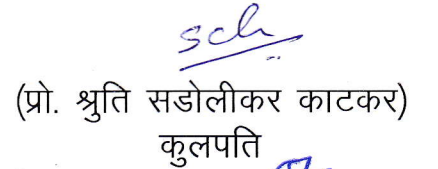 (प्रो. श्रुति सडोलीकर काटकर)
कुलपति